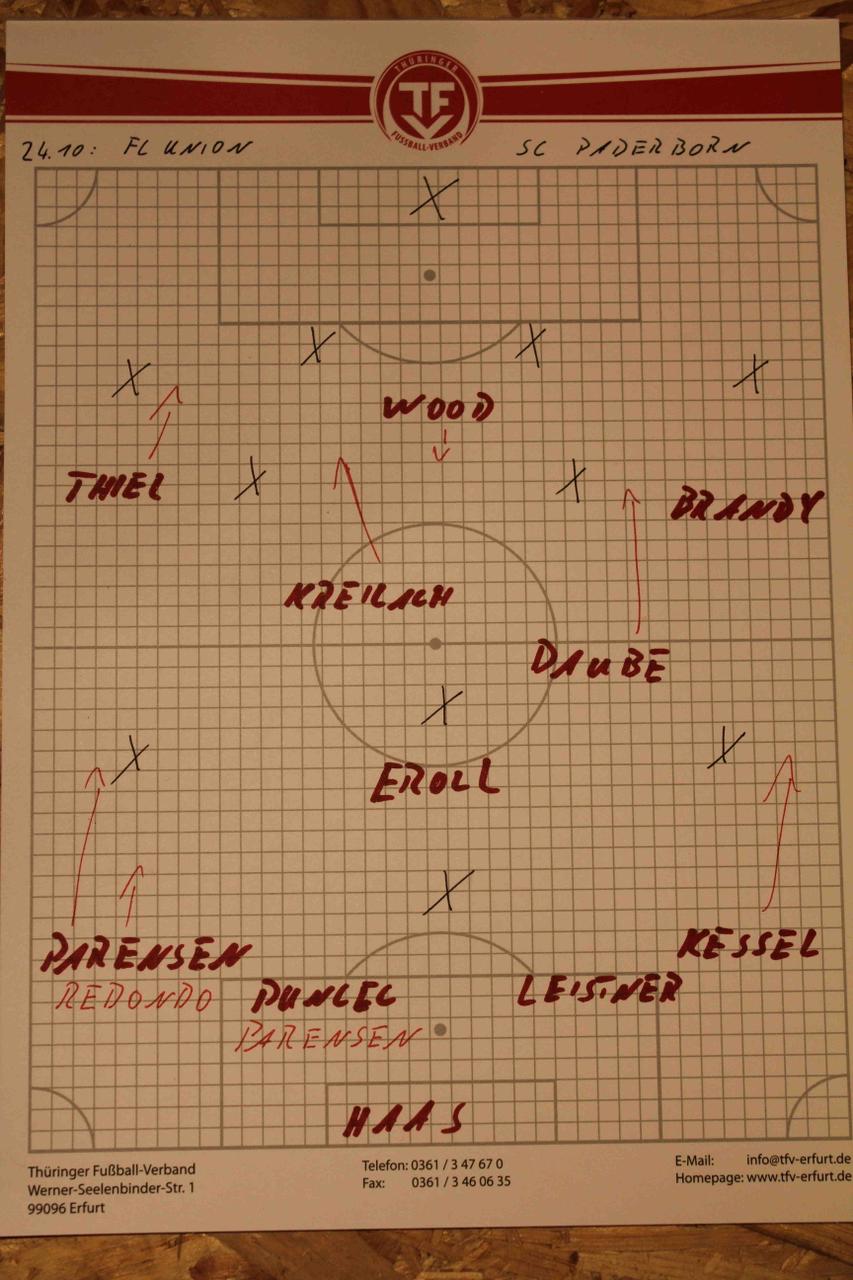 THÜRINGER
TF
FUSSBALL-VERBAND
24.10: FC UNION SC PADERBORN
X
X X
X X
WOOD
THIEL X X BRANDY
KREILACH
DAUBE
X
X X
EROLL
X
PARENSEN KESSEL
REDONDO PUNCEC LEISTNER
PARENSEN
HAAS
Thüringer Fußball-Verband
Werner-Seelenbinder-Str. 1
99096 Erfurt
Telefon: 0361 / 3 47 67 0
Fax: 0361 / 3 46 06 35
E-Mail: info@tfv-erfurt.de
Homepage: www.tfv-erfurt.de